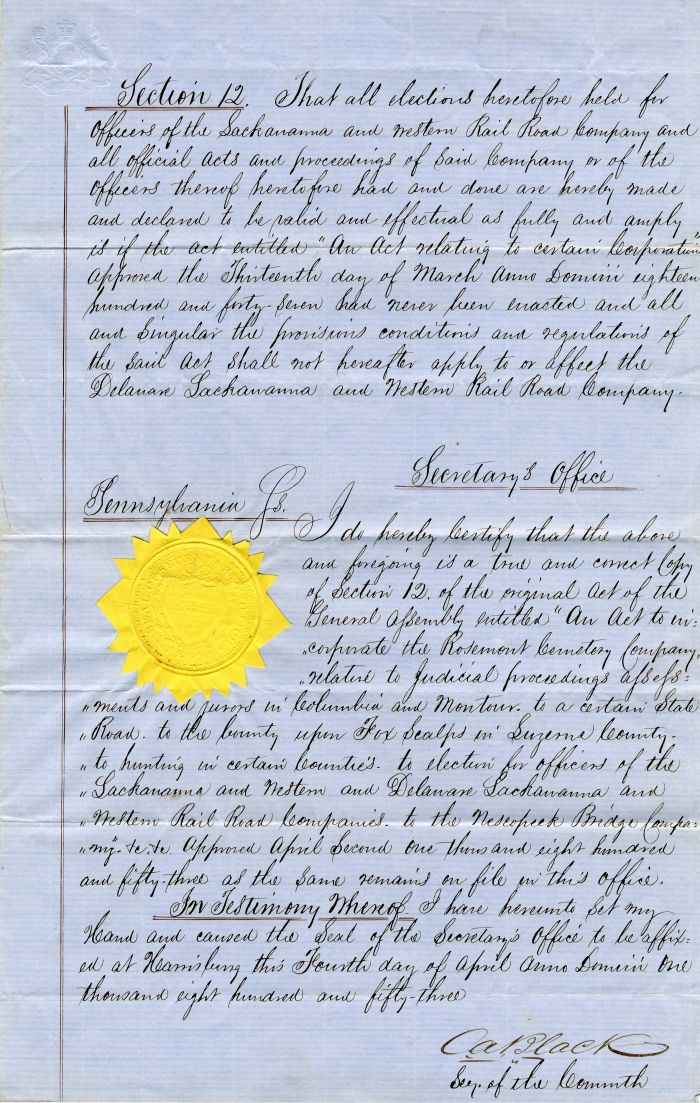 Section 12. That all elections heretofore held for
Officers of the Lackawanna and western Rail Road Company and
all official Acts and proceedings of said Company or of the
Officers thereof heretofore had and done are hereby made
and declared to be valid and effectual as fully and amply
is if the act entitled "An Act relating to certain Corporations"
approved the Thirteenth day of March Anno Domini eighteen
hundred and forty-seven had never been enacted and all
and Singular the provisions conditions and regulations of
the said Act shall not hereafter apply to or affect the
Delaware Lackawanna and Western Rail Road Company.
Secretary's Office
Pennsylvania Ss.
I do hereby Certify that the above
and foregoing is a true and correct Copy
of Section 12. of the original Act of the
General Assembly entitled "An Act to in-
"corporate the Rosemont Cemetery Company,
"relative to Judicial proceedings assess=
"ments and jurors in Columbia and Montour. to a certain State
"Road. to the bounty upon Fox Scalps in Luzerne County.
"to hunting in certain Counties. to election for officers of the
"Lackawanna and Western and Delaware Lackawanna and
"Western Rail Road Companies. to the Nescopeck Bridge Compa=
"ny. &c &c. Approved April Second One thousand eight hundred
and fifty-three as the same remains on file in this office.
In Testimony Whereof I have hereunto set my
Hand and caused the Seal of the Secretary's Office to be affix=
ed at Harrisburg this Fourth day of April Anno Domini One
thousand eight hundred and fifty-three
C A Black
Secy. of the Commth